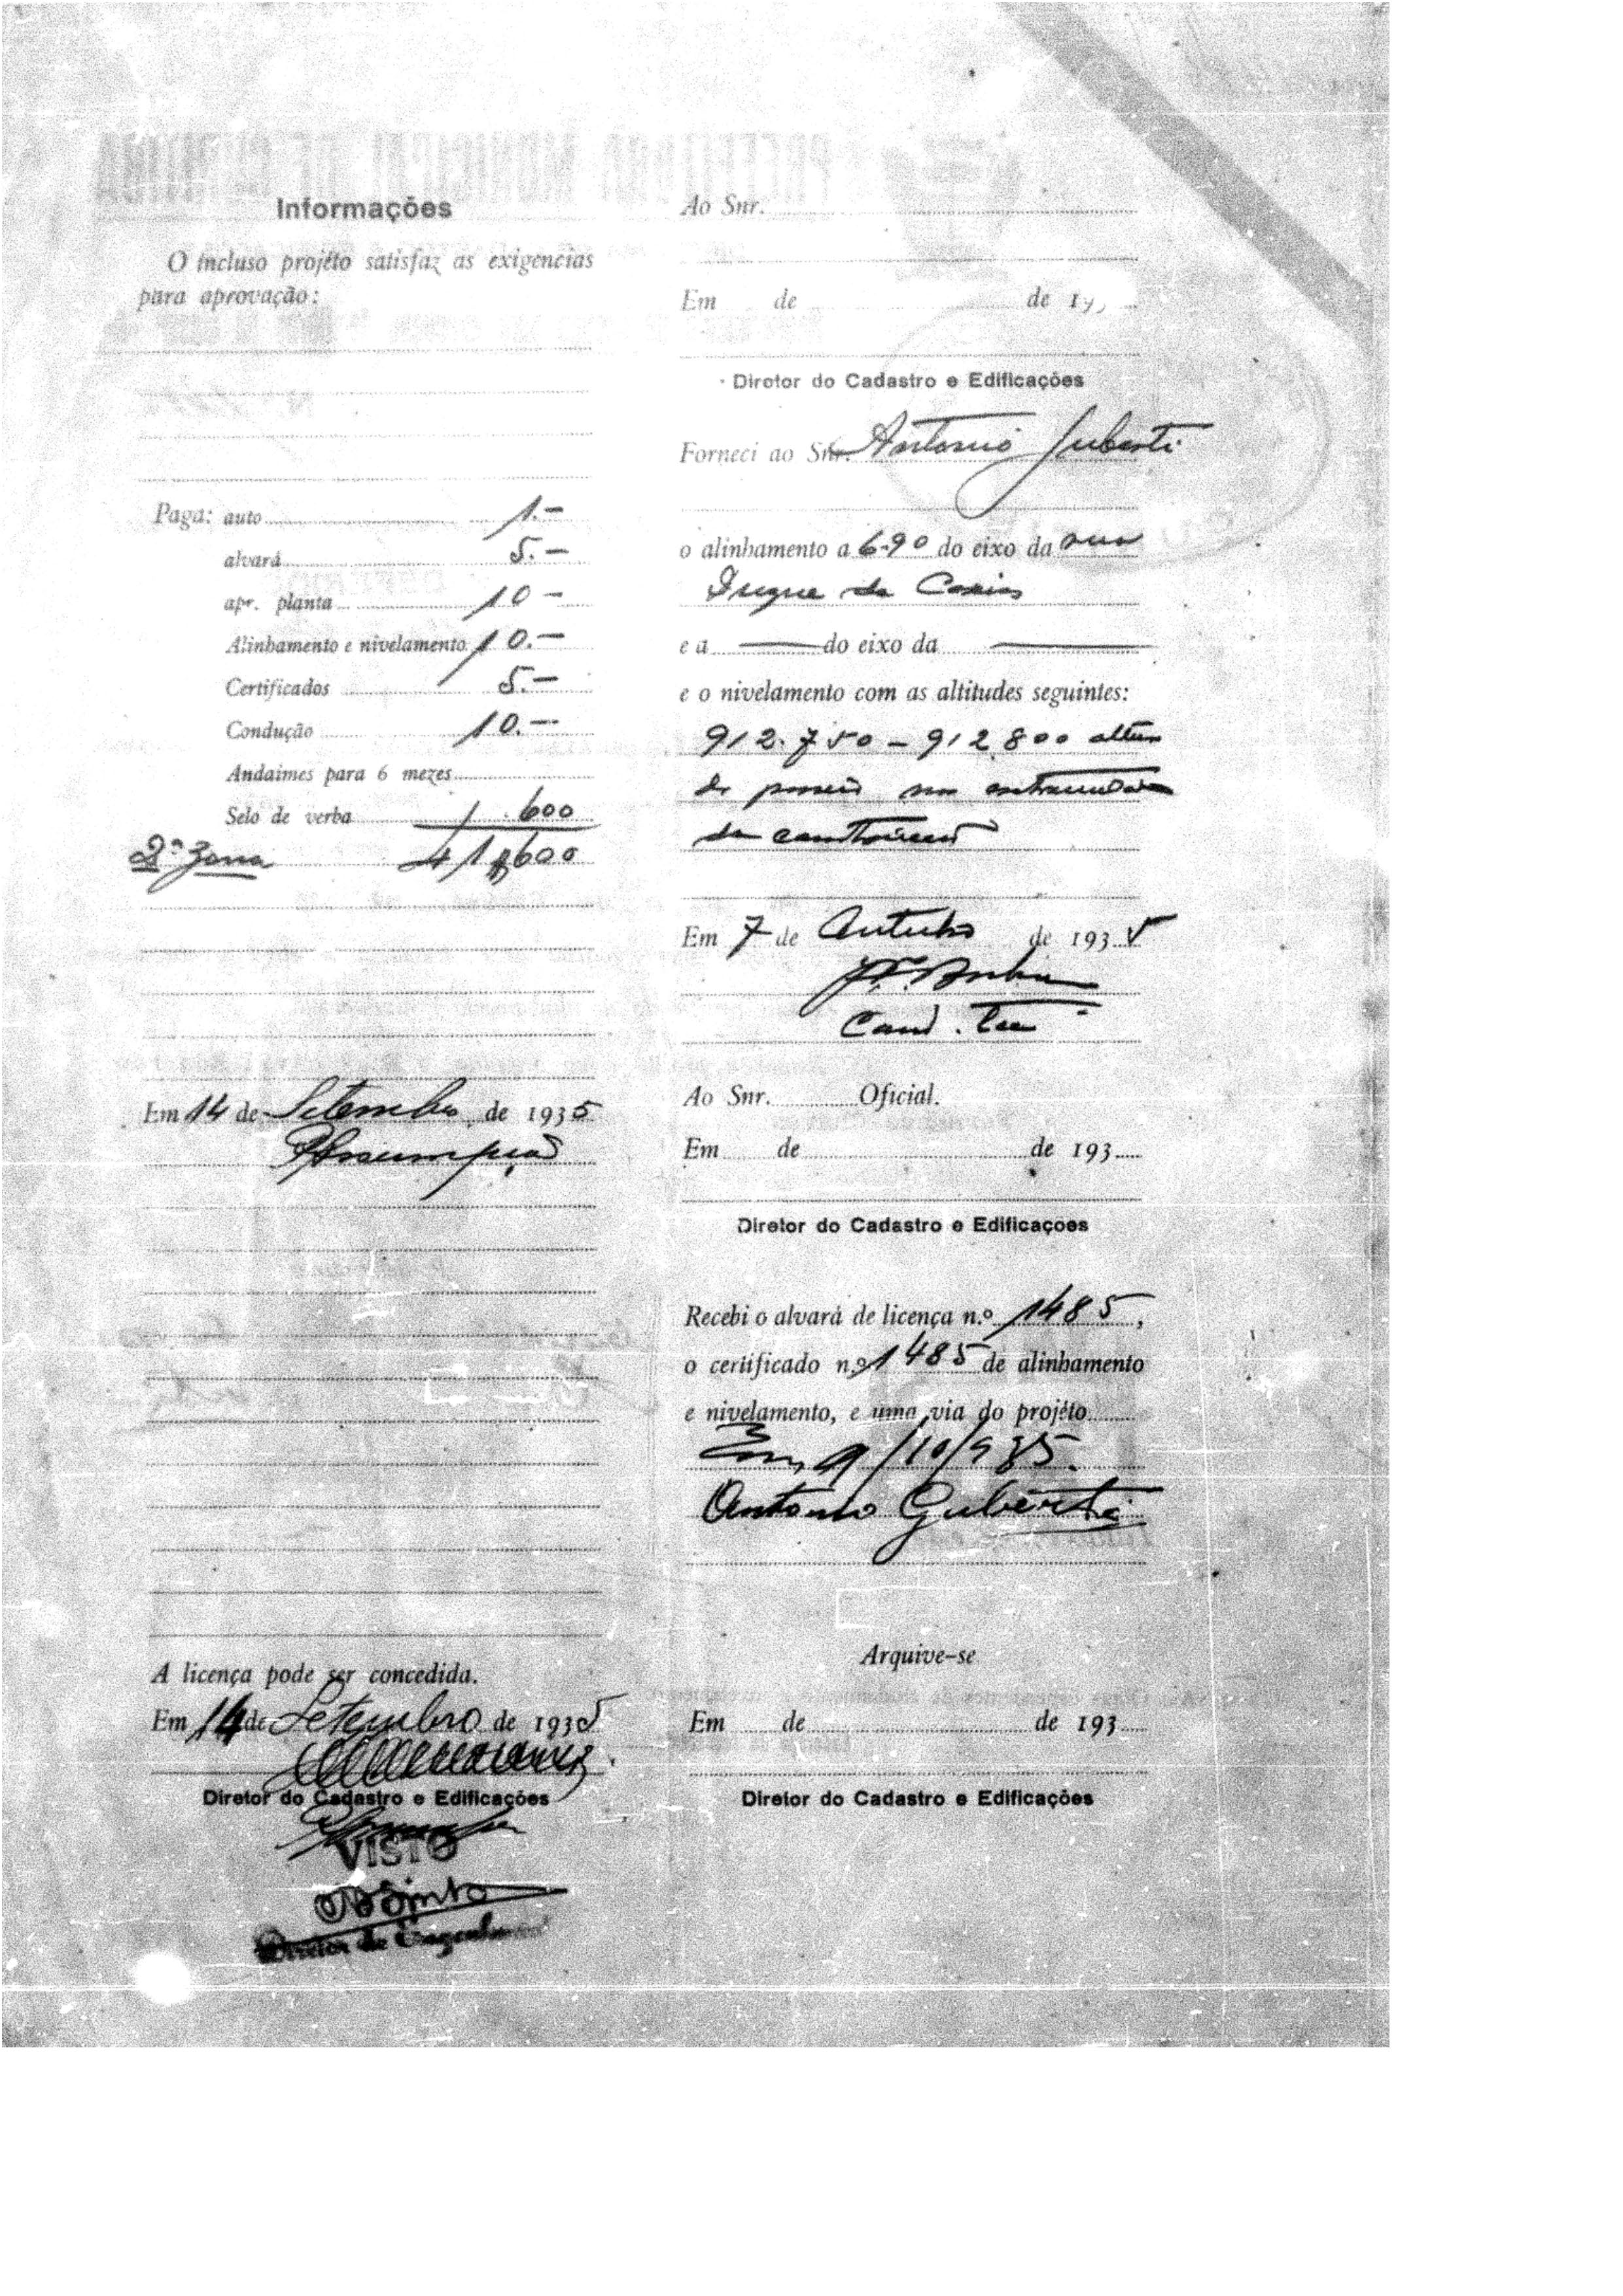 Informações
O incluso projéto satisfaz as exigencias
para aprovação:
Paga: auto 1.—
alvará 5.—
apr. planta 10 —
Alinhamento e nivelamento 10.—
Certificados 5.—
Condução 10.—
Andaimes para 6 mezes
Selo de verba 1.600
2ª Zona 41$600
Em 14 de Setembro de 1935
A licença pode ser concedida.
Em 14 de Setembro de 1935
Diretor do Cadastro e Edificações
VISTO
Diretor de Engenharia
Ao Snr.
Em de de 19
Diretor do Cadastro e Edificações
Forneci ao Snr. Antonio Guberti
o alinhamento a 6-90 do eixo da rua
Duque de Caxias
e a — do eixo da —
e o nivelamento com as altitudes seguintes:
912.750 – 912.800 altura
do passeio nas extremidades
da construcção
Em 7 de Outubro de 1935
Ao Snr. Oficial.
Em de de 193
Diretor do Cadastro e Edificações
Recebi o alvará de licença n.º 1485,
o certificado n.º 1485 de alinhamento
e nivelamento, e uma via do projéto
Em, 9/10/935.
Antonio Guberti
Arquive-se
Em de de 193
Diretor do Cadastro e Edificações